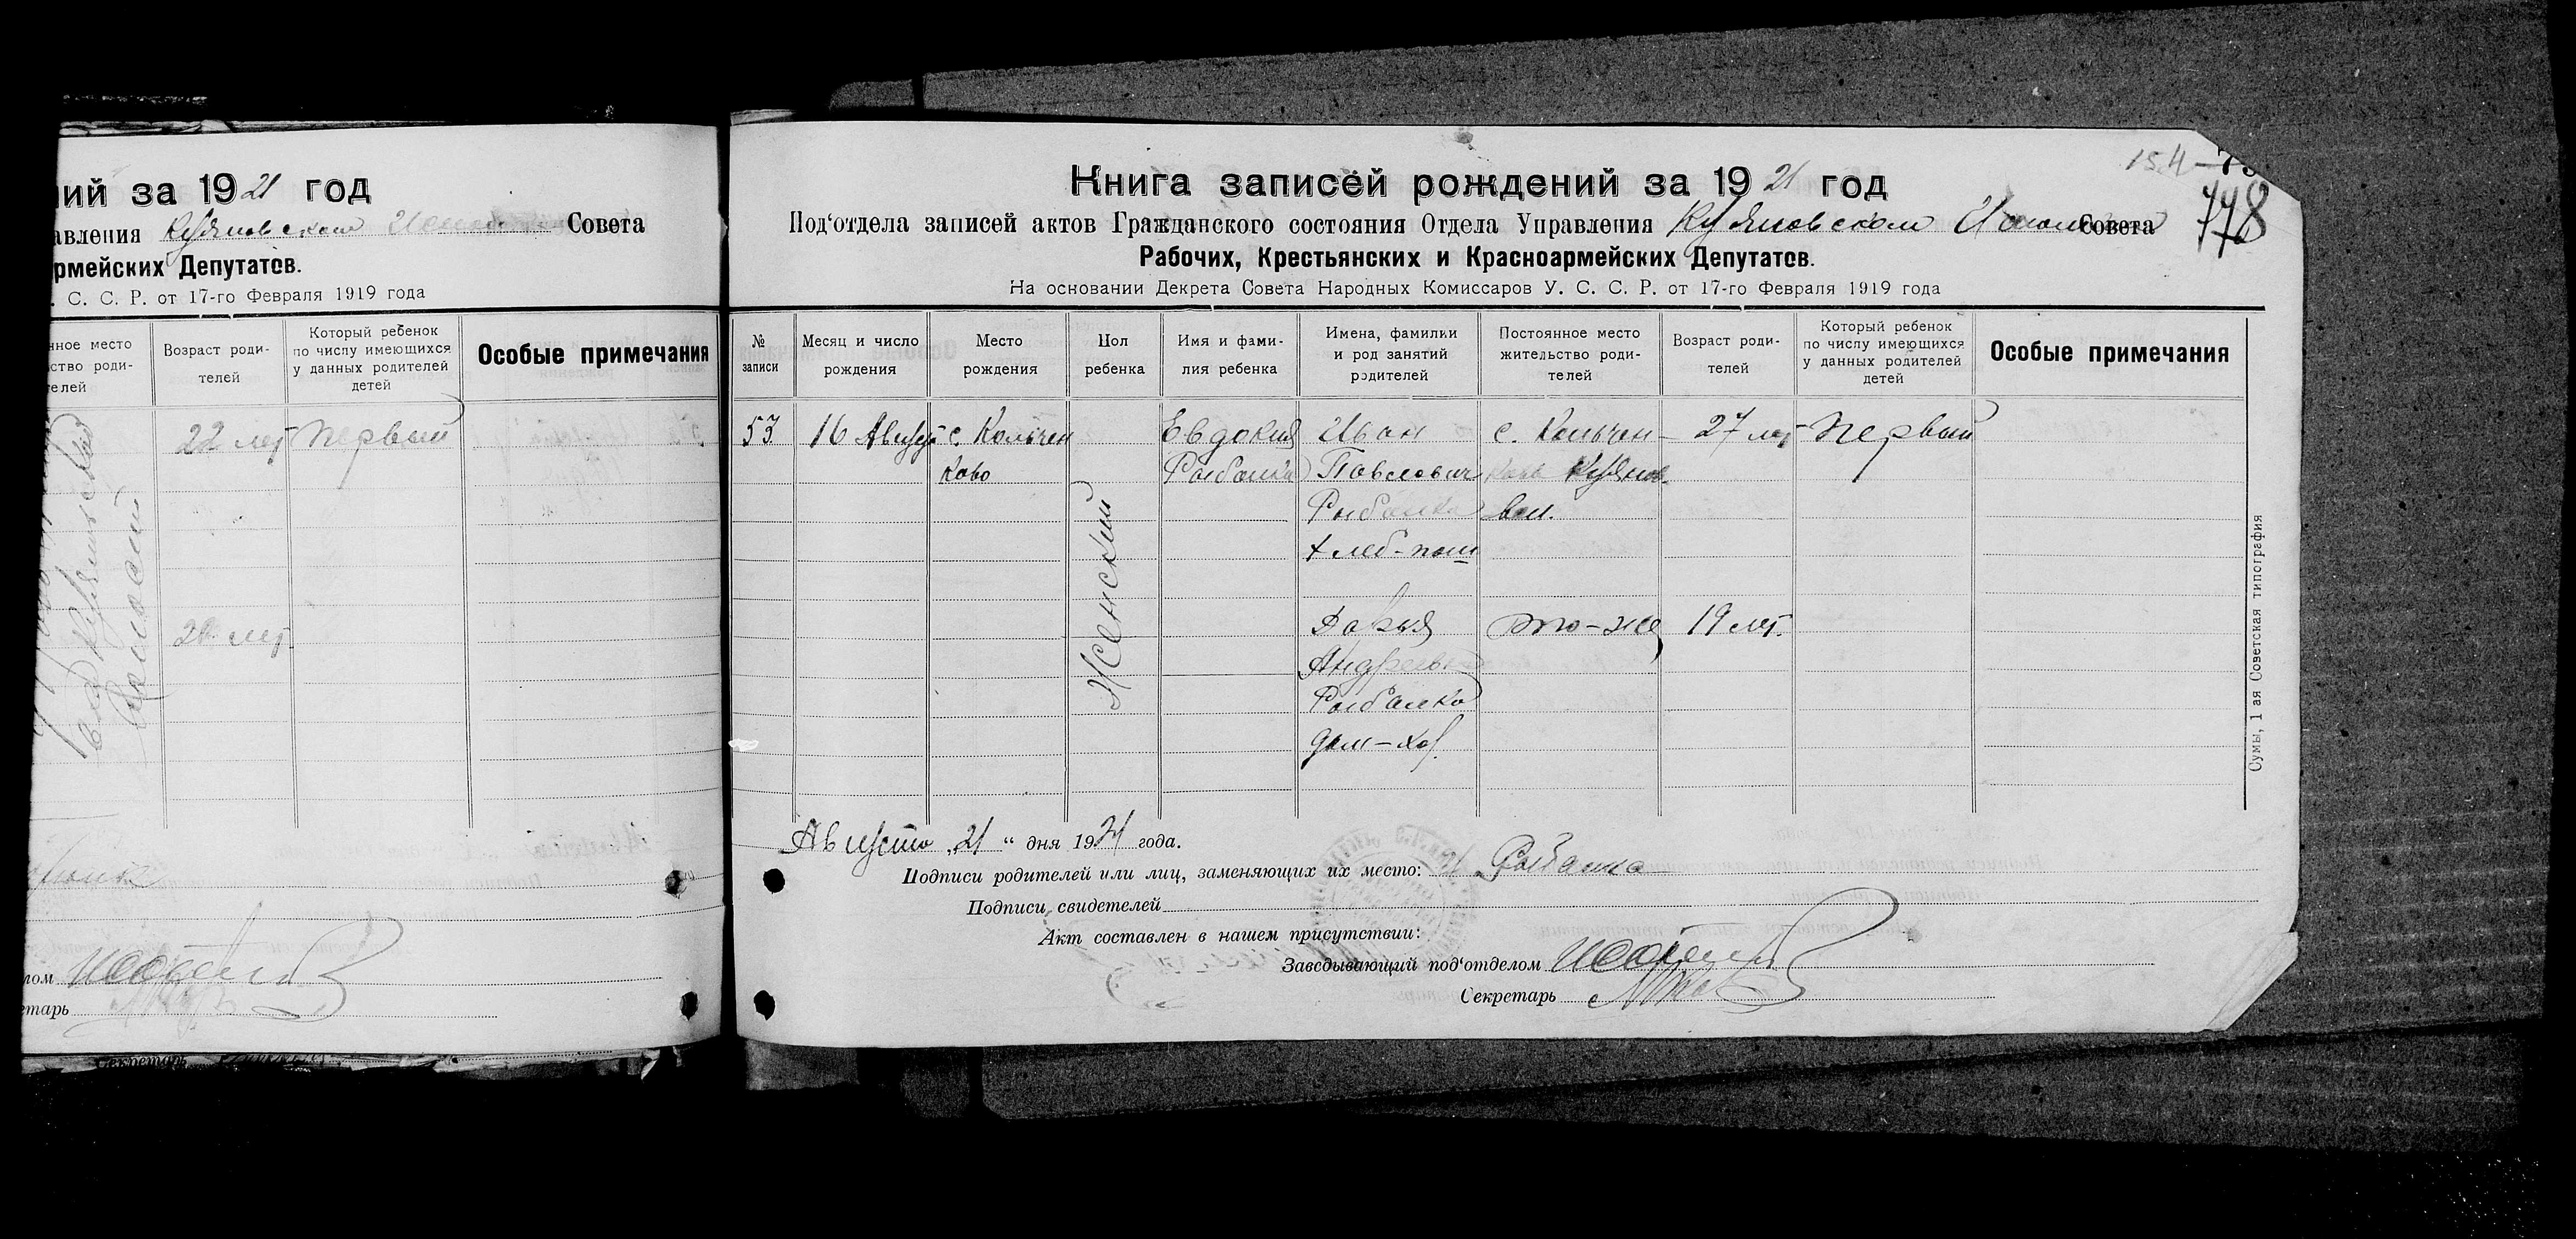 ий за 1921 год
авления Кузяновском Совета
рмейских Депутатов.
. С. С. Р. от 17-го Февраля 1919 года
нное место
ство роди-
телей
Возраст роди-
телей
Который ребенок
по числу имеющихся
у данных родителей
детей
Особые примечания
22 лет первый
лет.
Волости
лом
етарь
Секретарь
154
778
Книга записей рождений за 1921 год
Под'отдела записей актов Гражданского состояния Отдела Управления Кузяновском Совета
Рабочих, Крестьянских и Красноармейских Депутатов.
На основании Декрета Совета Народных Комиссаров У. С. С. Р. от 17-го Февраля 1919 года
№
записи
Месяц и число
рождения
Место
рождения
Пол
ребенка
Имя и фами-
лия ребенка
Имена, фамилии
и род занятий
родителей
Постоянное место
жительство роди-
телей
Возраст роди-
телей
Который ребенок
по числу имеющихся
у данных родителей
детей
Особые примечания
53
16 Август
с. Кольчен
ково
Женский
Евдокия
Рыбалка
Иван
Павлович
Рыбалка
хлеб-паш
Дарья
Андреевн
Рыбалка
дом-хоз.
с. Кольчен-
ково Кузянов.
вол.
то-же
27 лет
19 лет.
первый
Августа „21“ дня 1921 года.
Подписи родителей или лиц, заменяющих их место: И Рыбалка
Подписи свидетелей
Акт составлен в нашем присутствии:
Заведывающий под'отделом
Секретарь
Сумы, 1 ая Советская типография